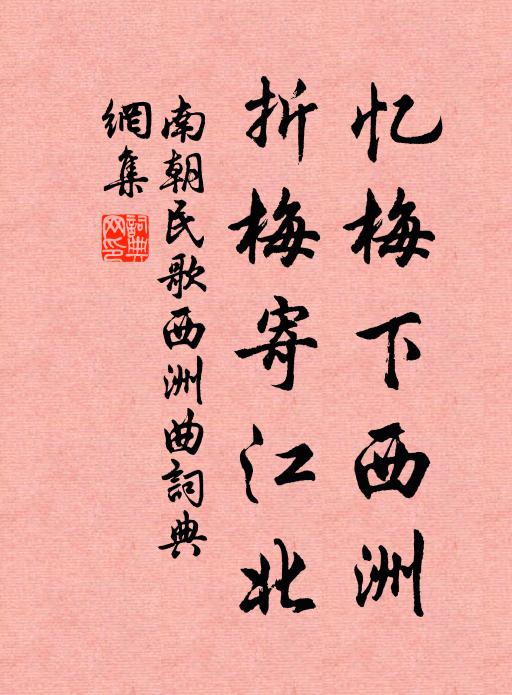 忆梅下西洲
折梅寄江北
南朝民歌西洲曲詞典
網集
詞典
网印